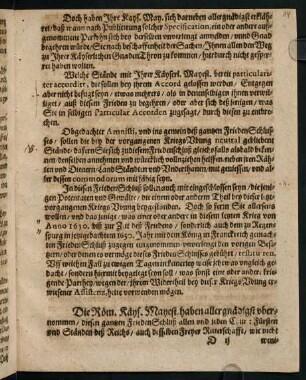 Doch haben Ihre Kayſ. May. ſich darneben allergnädigſt erkläh-
ret/ daß/ wann nach Publicirung ſolcher Specification, ein oder ander auß-
genommen Perſohn ſich bey derſelben vnverlängt anmelden/ vnnd Gnad
begehren würde/ Sie nach beſchaffenheit der Sachen/ Ihnen allen den Weg
zu Ihrer Käyſerlichen Gnaden Thron zu kommen/ hierdurch nicht geſper-
ret haben wollen.
Welche Stände mit Ihrer Käyſerl. Mayeſt. bereits particulari-
ter accordirt, die ſollen bey ihrem Accord gelaſſen werden. Entgegen
aber nicht befugt ſeyn/ etwas mehrers/ als denenſelben die ihnen verwil-
liget/ auß dieſem Frieden zu begehren/ oder aber ſich deß jenigen/ was
Sie in ſelbigen Particular Accorden zugeſagt/ durch dieſen zu entbre-
chen.
Obgedachter Amniſti, vnd ins gemein deß gantzen FriedenSchluſ-
ſes/ ſollen die bey der vorgangenen Kriegs Vbung neutral gebliebene
Stände/ dafern Sie ſich zu dieſem FriedensSchluß gleich falls alsbald beken-
nen/ denſelben annehmen vnd würcklich vollnziehen helffen neben ihren Räh-
ten vnd Dienern/ LandStänden vnd Vnderthanen/ mit genieſſen/ vnd al-
ler deſſen commodorum mit fähig ſeyn.
In dieſen FriedenSchluß ſollen auch mit eingeſchloſſen ſeyn/ die jeni-
gen Potentaten vnd Gewälte/ die einem oder andern Theil bey dieſer vor-
gegangenen Kriegs Vbung beygeſtanden. Doch ſo fern Sie alſo ſeyn
wollen/ vnd das jenige/ was einer oder ander in dieſem letzten Krieg von
Anno 1630. biß zur Zeit des Friedens/ ſonderlich auch dem zu Regen-
ſpurg in jetztgedachtem 1630. Jahr mit dem König in Franckreich gemach-
ten Frieden Schluß zugegen eingenommen vnverlengt den vorigen Beſitz-
ern/ oder denen es vermöge des Frieden Schluſſes gebührt/ reſtituiren.
Auf welchen Fall zu ewigen Tagen in keinerley weiſe ichtwas vngleich ge-
dacht/ ſondern hiermit beygelegt ſeyn ſoll/ was ſonſt eine oder andere krie-
gende Parthey/ wegen der/ ihrem Widertheil bey dieſer Kriegs Vbung er-
wieſener Aſſiſtenz, hette vorwenden mögen.
Die Röm. Käyſ. Mayeſt. haben allergnädigſt vber-
nommen/ dieſen gantzen FriedenSchluß allen vnd jeden Cur: Fürſten
vnd Ständen deß Reichs/ auch deſſelben Freyer Ritterſchafft/ wie nicht
D ij